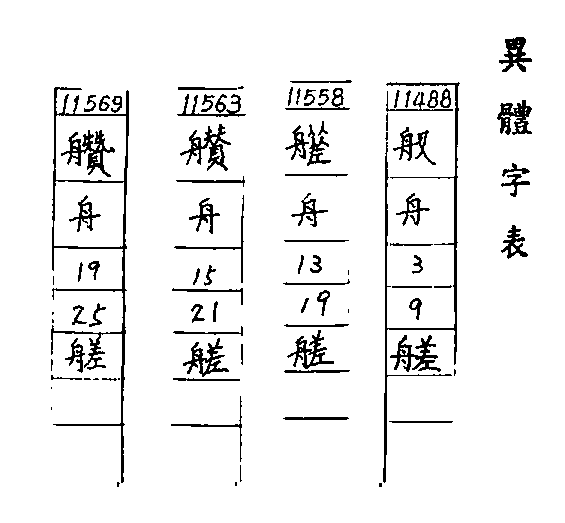 異體字表
11488
䑡
舟
3
9
艖
11558
舟
13
19
艖
11563
舟
15
21
艖
11569
舟
19
25
艖